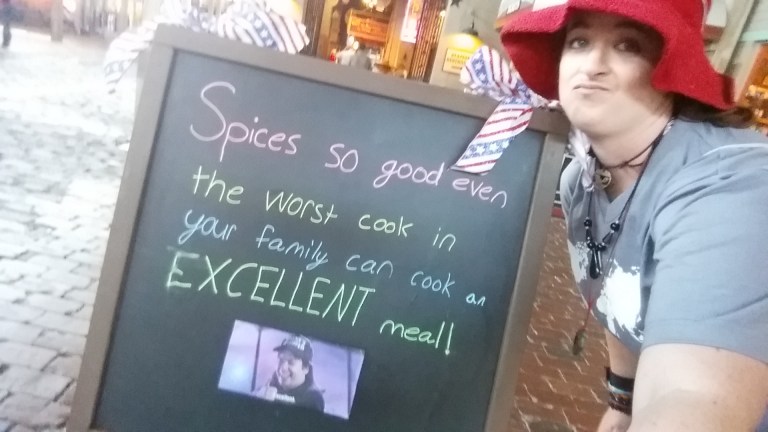 Spices so good even
the worst cook in
your family can cook an
EXCELLENT meal!